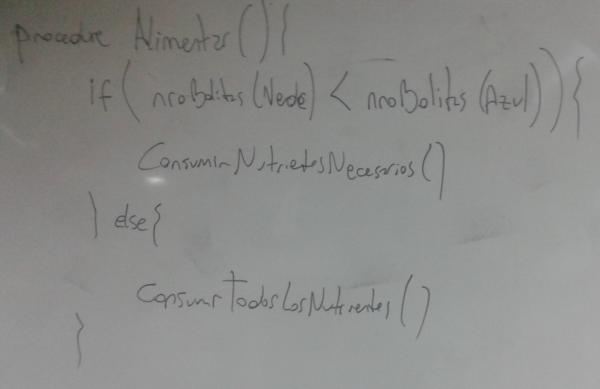 procedure Alimentar(){
if( nroBolitas(Verde) < nroBolitas(Azul)){
ConsumirNutrientesNecesarios()
} else{
ConsumirTodosLosNutrientes()
}